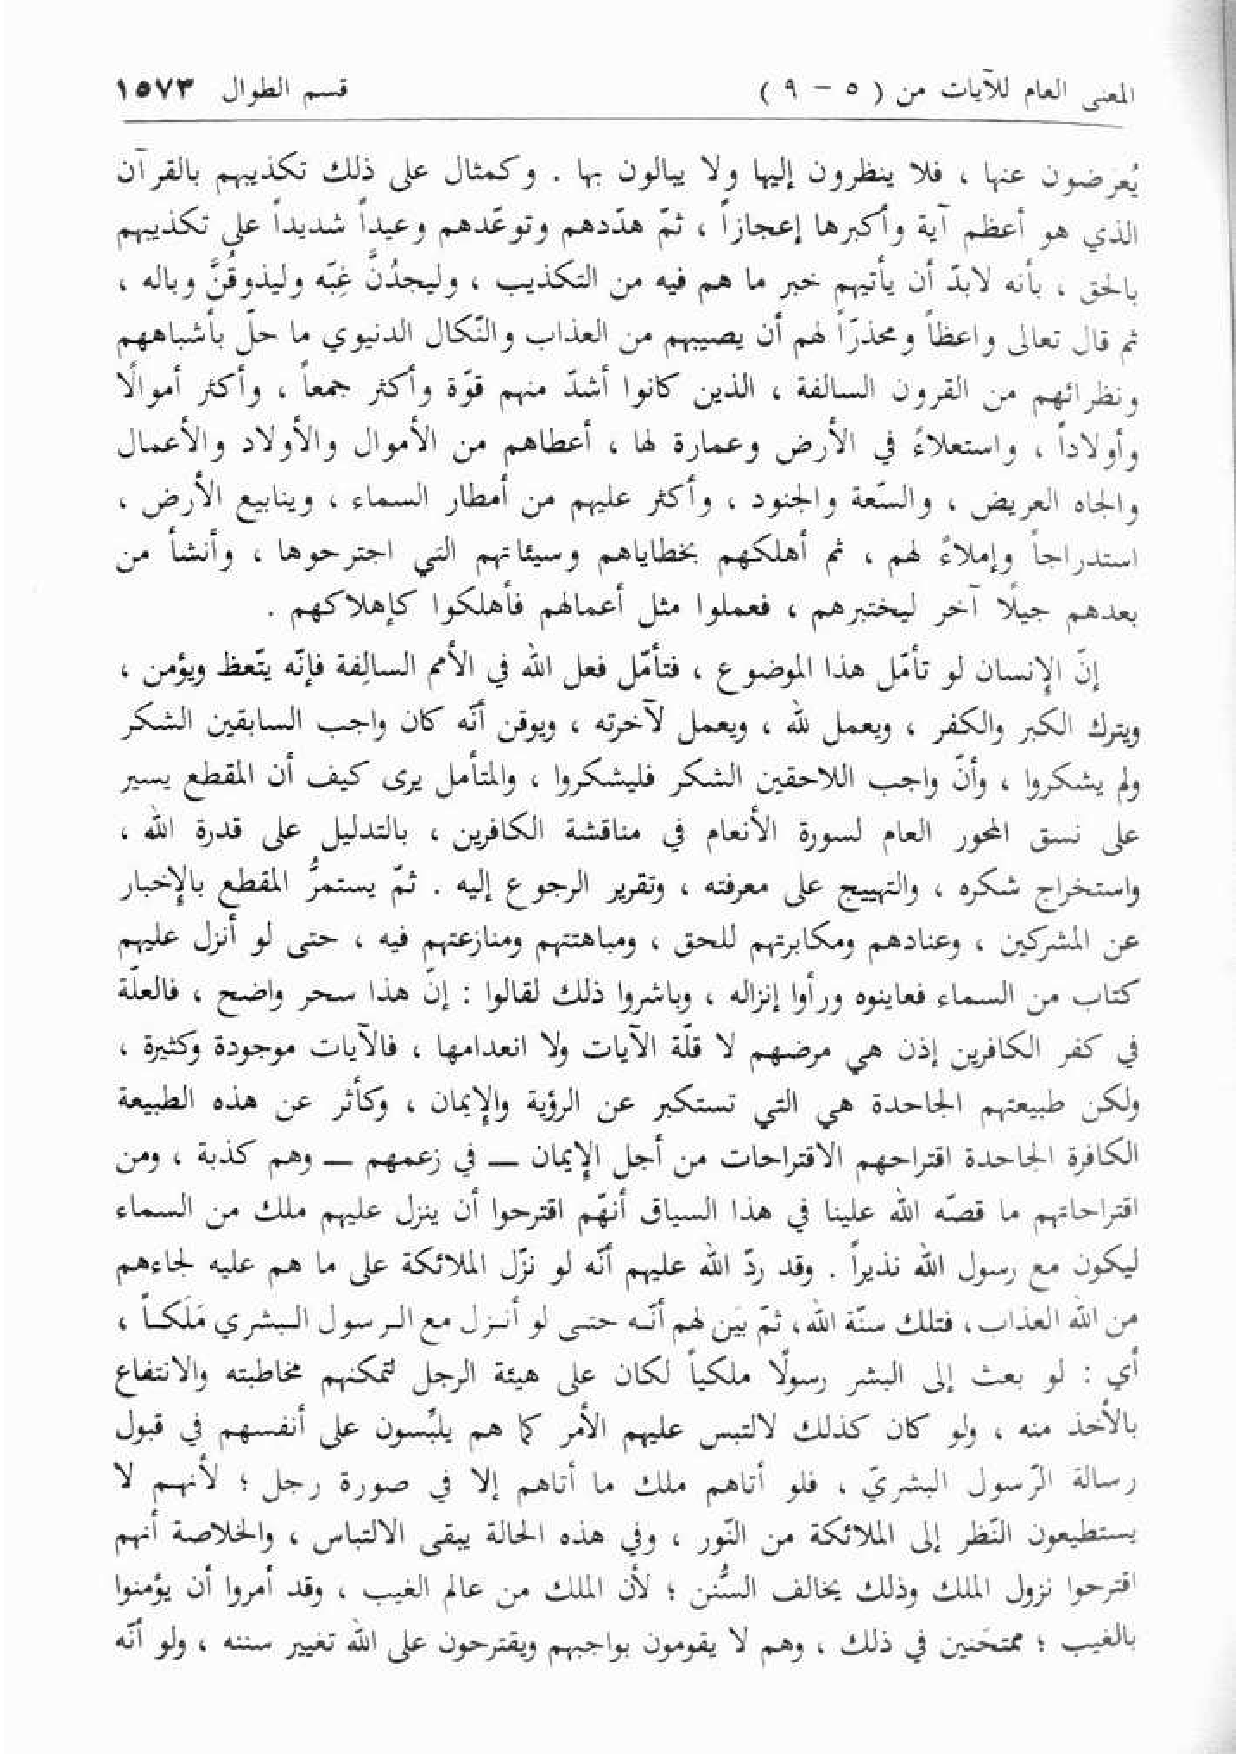 المعنى العام للآيات من ( ٥ - ٩ ) قسم الطوال ١٥٧٣
يُعرضون عنها ، فلا ينظرون إليها ولا يبالون بها . وكمثال على ذلك تكذيبهم بالقرآن
الذي هو أعظم آية وأكبرها إعجازاً ، ثمّ هدّدهم وتوعّدهم وعيداً شديداً على تكذيبهم
بالحق ، بأنه لابدّ أن يأتيهم خبر ما هم فيه من التكذيب ، وليجدُنَّ غِبّه وليذوقُنَّ وباله ،
ثم قال تعالى واعظاً ومحذرّاً لهم أن يصيبهم من العذاب والنّكال الدنيوي ما حلّ بأشباههم
ونظرائهم من القرون السالفة ، الذين كانوا أشدّ منهم قوّة وأكثر جمعاً ، وأكثر أموالًا
وأولاداً ، واستعلاءً في الأرض وعمارة لها ، أعطاهم من الأموال والأولاد والأعمال
والجاه العريض ، والسّعة والجنود ، وأكثر عليهم من أمطار السماء ، وينابيع الأرض ،
استدراجاً وإملاءً لهم ، ثم أهلكهم بخطاياهم وسيئاتهم التي اجترحوها ، وأنشأ من
بعدهم جيلًا آخر ليختبرهم ، فعملوا مثل أعمالهم فأهلكوا كإهلاكهم .
إنّ الإنسان لو تأمّل هذا الموضوع ، فتأمّل فعل الله في الأمم السالِفة فإنّه يتّعظ ويؤمن ،
ويترك الكبر والكفر ، ويعمل لله ، ويعمل لآخرته ، ويوقن أنّه كان واجب السابقين الشكر
ولم يشكروا ، وأنّ واجب اللاحقين الشكر فليشكروا ، والمتأمل يرى كيف أن المقطع يسير
على نسق المحور العام لسورة الأنعام في مناقشة الكافرين ، بالتدليل على قدرة الله ،
واستخراج شكره ، والتهييج على معرفته ، وتقرير الرجوع إليه . ثمّ يستمرُّ المقطع بالإخبار
عن المشركين ، وعنادهم ومكابرتهم للحق ، ومباهتتهم ومنازعتهم فيه ، حتى لو أنزل عليهم
كتاب من السماء فعاينوه ورأوا إنزاله ، وباشروا ذلك لقالوا : إنّ هذا سحر واضح ، فالعلّة
في كفر الكافرين إذن هي مرضهم لا قلّة الآيات ولا انعدامها ، فالآيات موجودة وكثيرة ،
ولكن طبيعتهم الجاحدة هي التي تستكبر عن الرؤية والإيمان ، وكأثر عن هذه الطبيعة
الكافرة الجاحدة اقتراحهم الاقتراحات من أجل الإيمان ــ في زعمهم ــ وهم كذبة ، ومن
اقتراحاتهم ما قصّه الله علينا في هذا السياق أنهّم اقترحوا أن ينزل عليهم ملك من السماء
ليكون مع رسول الله نذيراً . وقد ردّ الله عليهم أنّه لو نزّل الملائكة على ما هم عليه لجاءهم
من الله العذاب، فتلك سنّة الله، ثمّ بيّن لهم أنّـه حتـى لو أنـزل مع الـرسول الـبشري مَلَكـاً ،
أي : لو بعث إلى البشر رسولًا ملكياً لكان على هيئة الرجل لتمكنهم مخاطبته والانتفاع
بالأخذ منه ، ولو كان كذلك لالتبس عليهم الأمر كما هم يلبِّسون على أنفسهم في قبول
رسالة الرّسول البشريّ ، فلو أتاهم ملك ما أتاهم إلا في صورة رجل ؛ لأنهـم لا
يستطيعون النّظر إلى الملائكة من النّور ، وفي هذه الحالة يبقى الالتباس ، والخلاصة أنهم
اقترحوا نزول الملك وذلك يخالف السُّنن ؛ لأن الملك من عالم الغيب ، وقد أمروا أن يؤمنوا
بالغيب ؛ ممتحَنين في ذلك ، وهم لا يقومون بواجبهم ويقترحون على الله تغيير سننه ، ولو أنّه